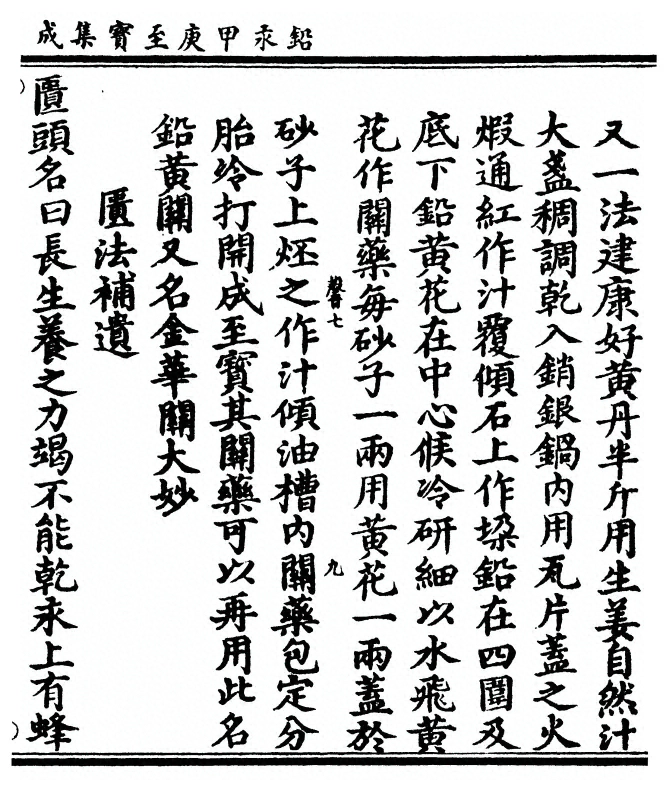 鉛汞甲庚至寶集成
又一法建康好黃丹半斤用生姜自然汁
大盞稠調乾入銷銀鍋內用瓦片蓋之火
煆通紅作汁覆傾石上作垜鉛在四圍及
底下鉛黃花在中心候冷研細以水飛黃
花作關藥每砂子一兩用黃花一兩蓋於
馨七
九
砂子上烀之作汁傾油槽內關藥包定分
胎冷打開成至寶其關藥可以再用此名
鉛黃關又名金華關大妙
匱法補遺
匱頭名曰長生養之力竭不能乾汞上有蜂